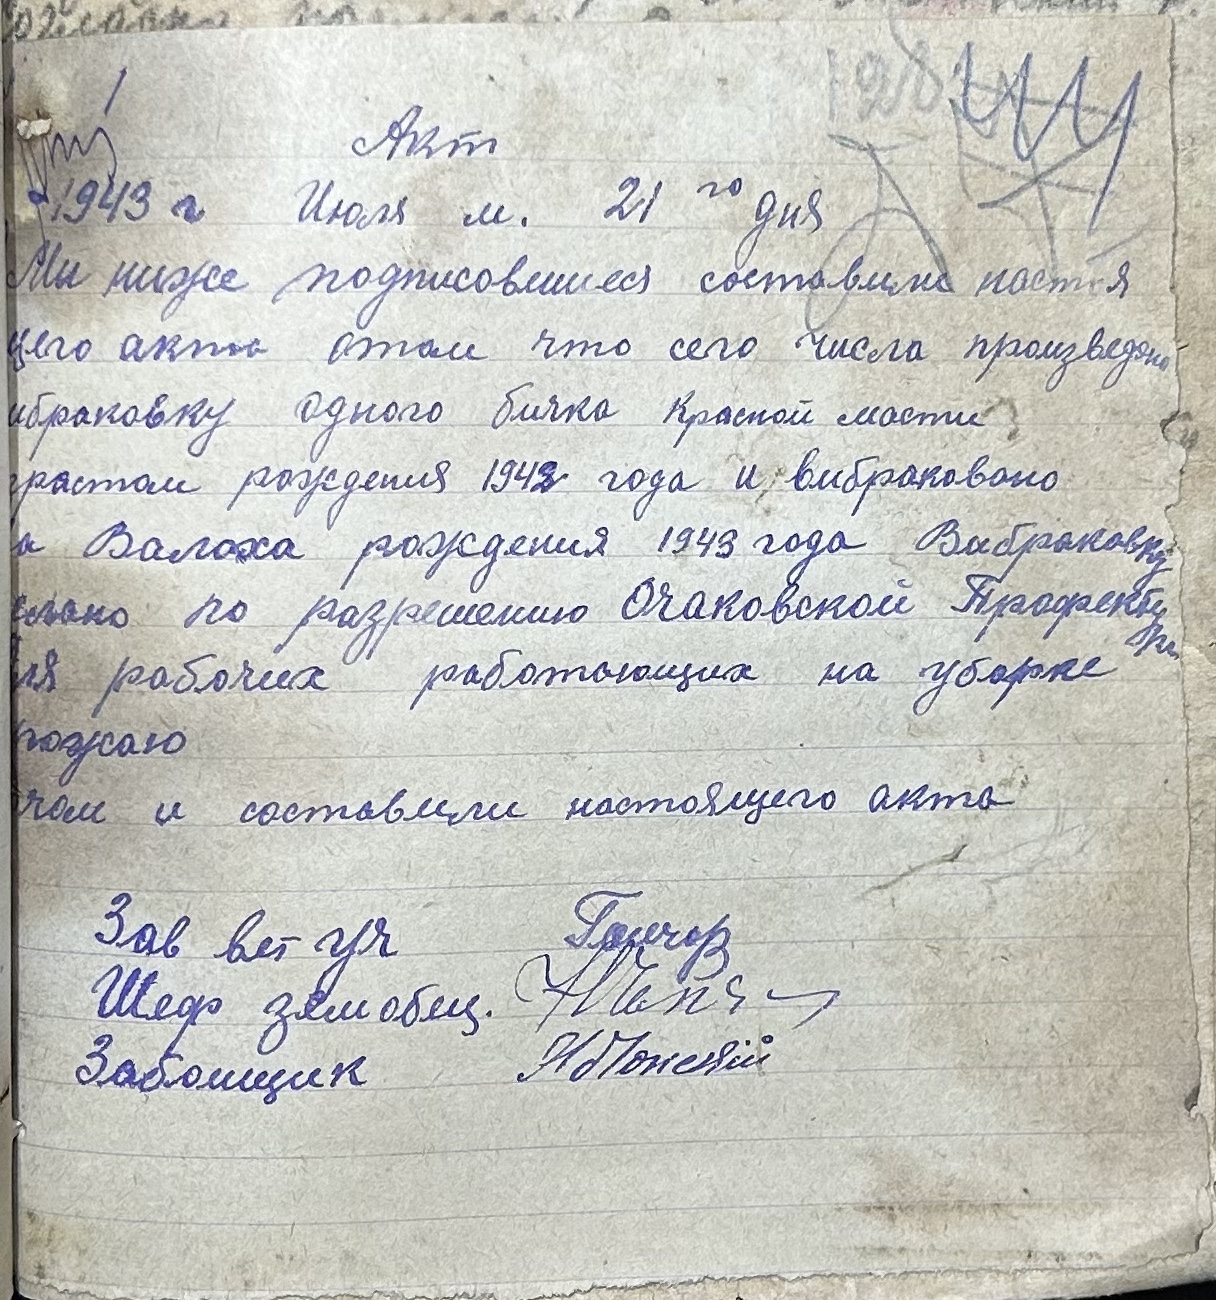 Акт
1943 г Июля м. 21 го дня
Мы ниже подписовшиеся составили настоя
щего акта отом что сего числа произведено
ибраковку одного бичка красной масти
зрастом рождения 1942 года и вибраковано
а Валаха рождения 1943 года Вибраковку
елано по разрешению Очаковской Префекту
ри
ля рабочих работающих на уборке
рожаю
чом и составили настоящего акта
Зав вет уч Гончар
Шеф зем обещ.
Забоищик